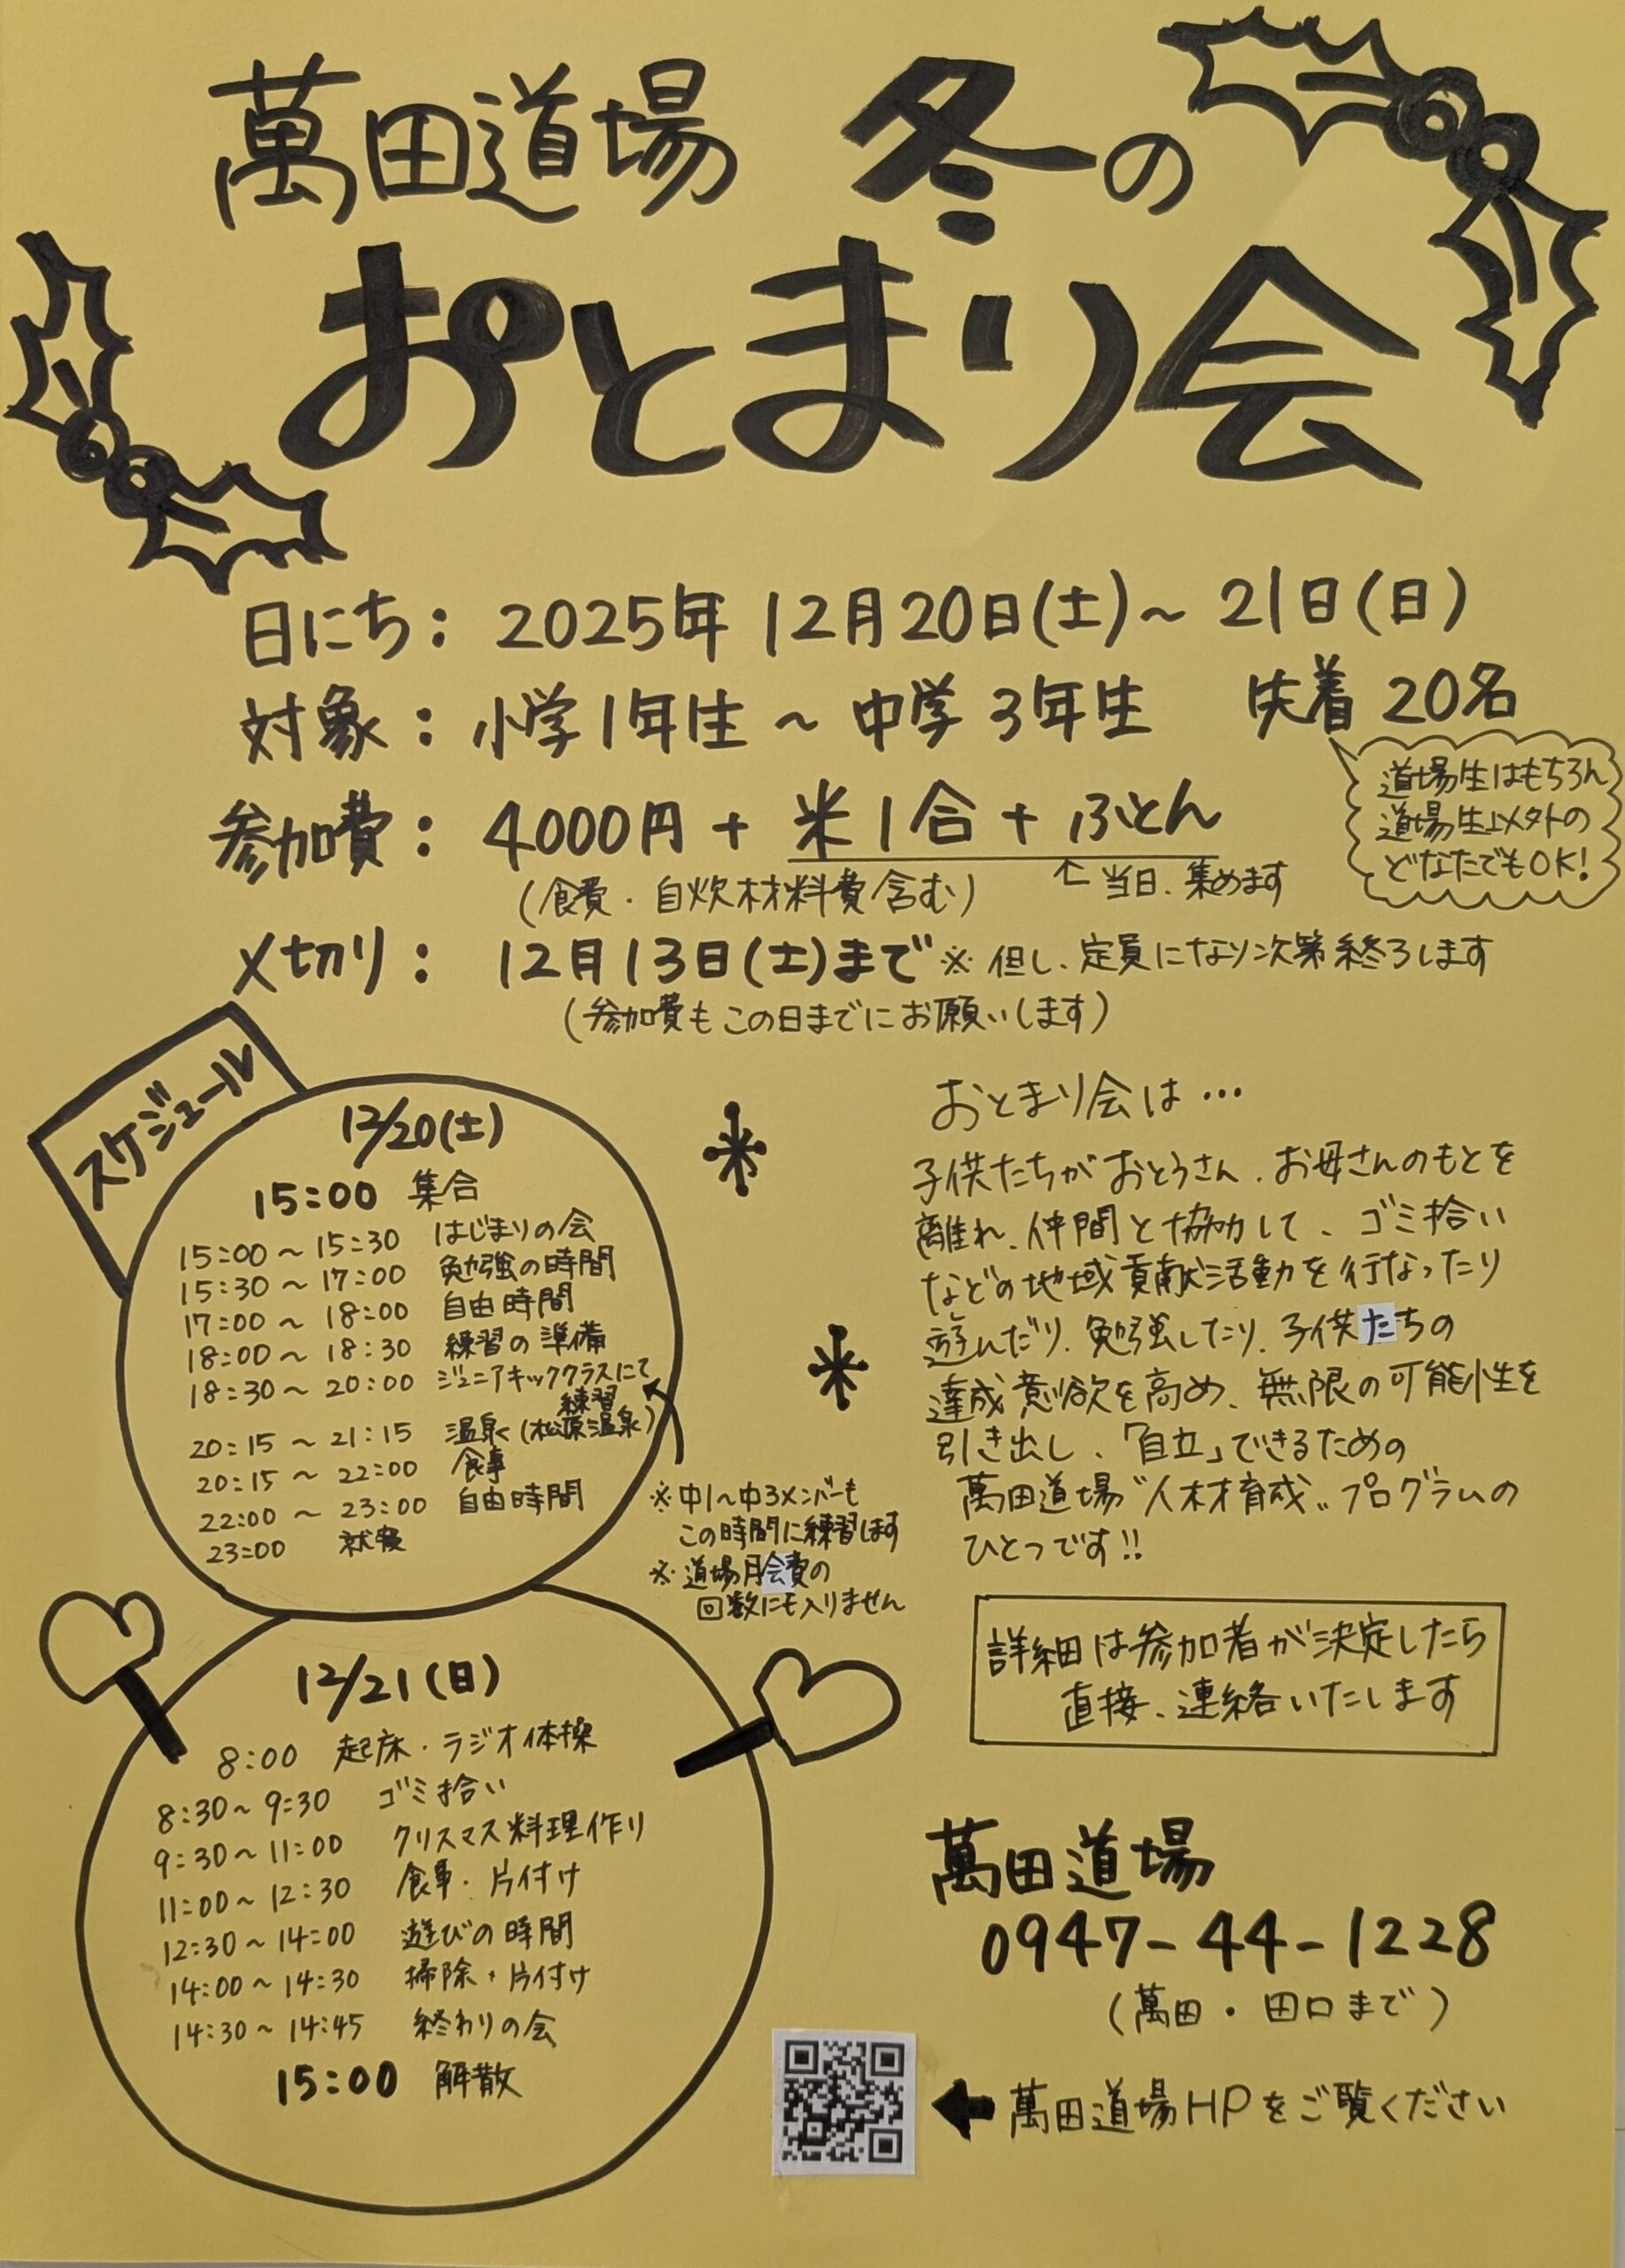 萬田道場 冬の
おとまり会
日にち： 2025年 12月20日(土)～ 21日(日)
対象： 小学1年生 ～ 中学3年生 先着 20名
道場生はもちろん
道場生以外の
どなたでもOK!
参加費： 4000円 + 米1合 + ふとん
(食費・自炊材料費含む)
↑当日、集めます
〆切り： 12月13日(土)まで ※但し、定員になり次第終了します
(参加費もこの日までにお願いします)
スケジュール
12/20(土)
15:00 集合
15:00～15:30 はじまりの会
15:30～17:00 勉強の時間
17:00～18:00 自由時間
18:00～18:30 練習の準備
18:30～20:00 ジュニアキッククラスにて
練習
20:15～21:15 温泉(松原温泉)
20:15～22:00 食事
22:00～23:00 自由時間
23:00 就寝
※中1～中3メンバーも
この時間に練習します
※道場月会費の
回数にも入りません
12/21(日)
8:00 起床・ラジオ体操
8:30～9:30 ゴミ拾い
9:30～11:00 クリスマス料理作り
11:00～12:30 食事・片付け
12:30～14:00 遊びの時間
14:00～14:30 掃除・片付け
14:30～14:45 終わりの会
15:00 解散
おとまり会は…
子供たちがおとうさん、お母さんのもとを
離れ、仲間と協力して、ゴミ拾い
などの地域貢献活動を行なったり
遊んだり、勉強したり、子供たちの
達成意欲を高め、無限の可能性を
引き出し、「自立」できるための
萬田道場"人材育成"プログラムの
ひとつです!!
詳細は参加者が決定したら
直接、連絡いたします
萬田道場
0947-44-1228
(萬田・田口まで)
←萬田道場HPをご覧ください